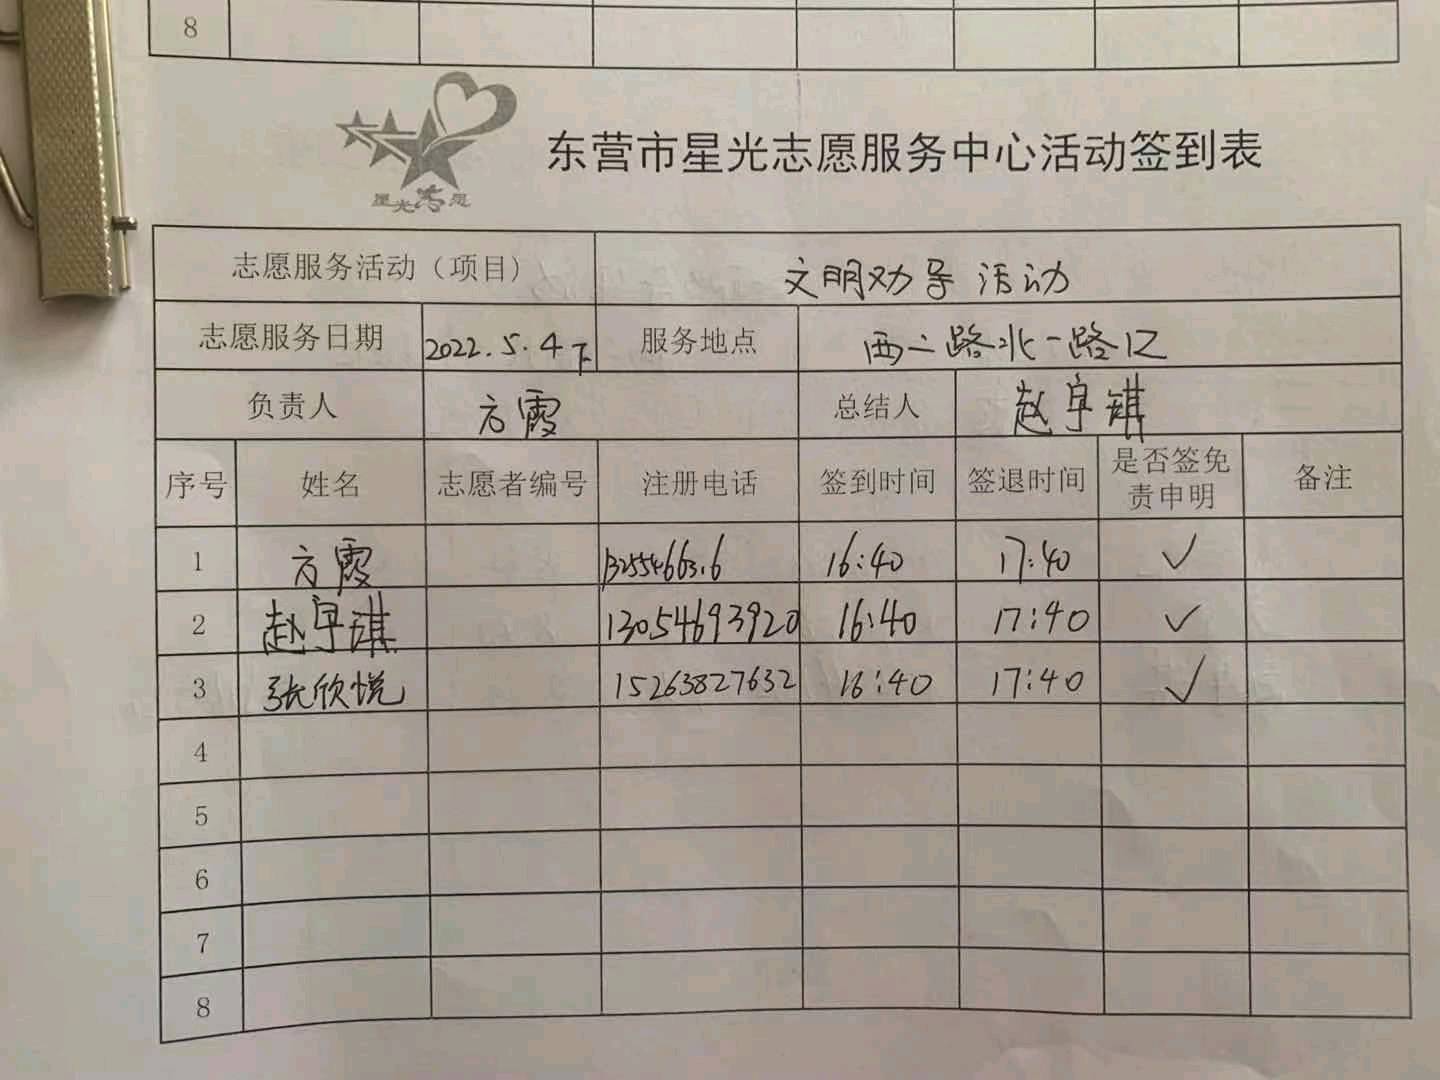 8
星光志愿
东营市星光志愿服务中心活动签到表
志愿服务活动（项目） 文明劝导活动
志愿服务日期 2022.5.4下 服务地点 西二路北一路口
负责人 方霞 总结人 赵宇琪
序号 姓名 志愿者编号 注册电话 签到时间 签退时间 是否签免责申明 备注
1 方霞 16:40 17:40 ✓
2 赵宇琪 13054693920 16:40 17:40 ✓
3 张欣悦 15263827632 16:40 17:40 ✓
4
5
6
7
8